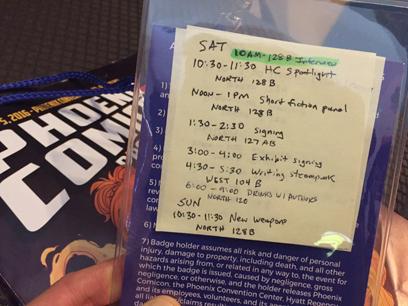 5, 2016 - PHOENIX
PHOEN
COMIC
SAT 10AM - 128B Interview
10:30-11:30 HC Spotlight
NORTH 128B
NOON - 1PM Short fiction panel
NORTH 128B
1:30-2:30 Signing
NORTH 127AB
3:00-4:00 Exhibit signing
4:30-5:30 Writing steampunk
WEST 104B
6:00-9:00 DRINKS W/ AUTHORS
NORTH 120
SUN
10:30-11:30 New Weapons
NORTH 128B
7) Badge holder assumes all risk and danger of personal
injury, damage to property, including death, and all other
hazards arising from, or related in any way to, the event for
which the badge is issued, caused by negligence, gross
negligence, or otherwise, and the holder releases Phoenix
Comicon, the Phoenix Convention Center, Hyatt Regency
and its employees, volunteers, and its